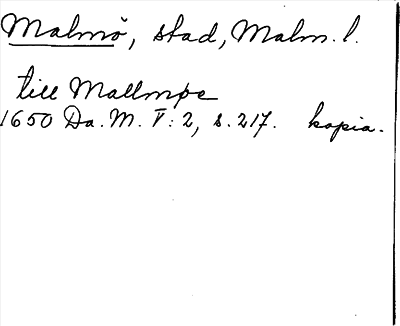 Malmö, stad, Malm. l.
till Mallmpe
1650 Da. M. V: 2, s. 217. kopia.